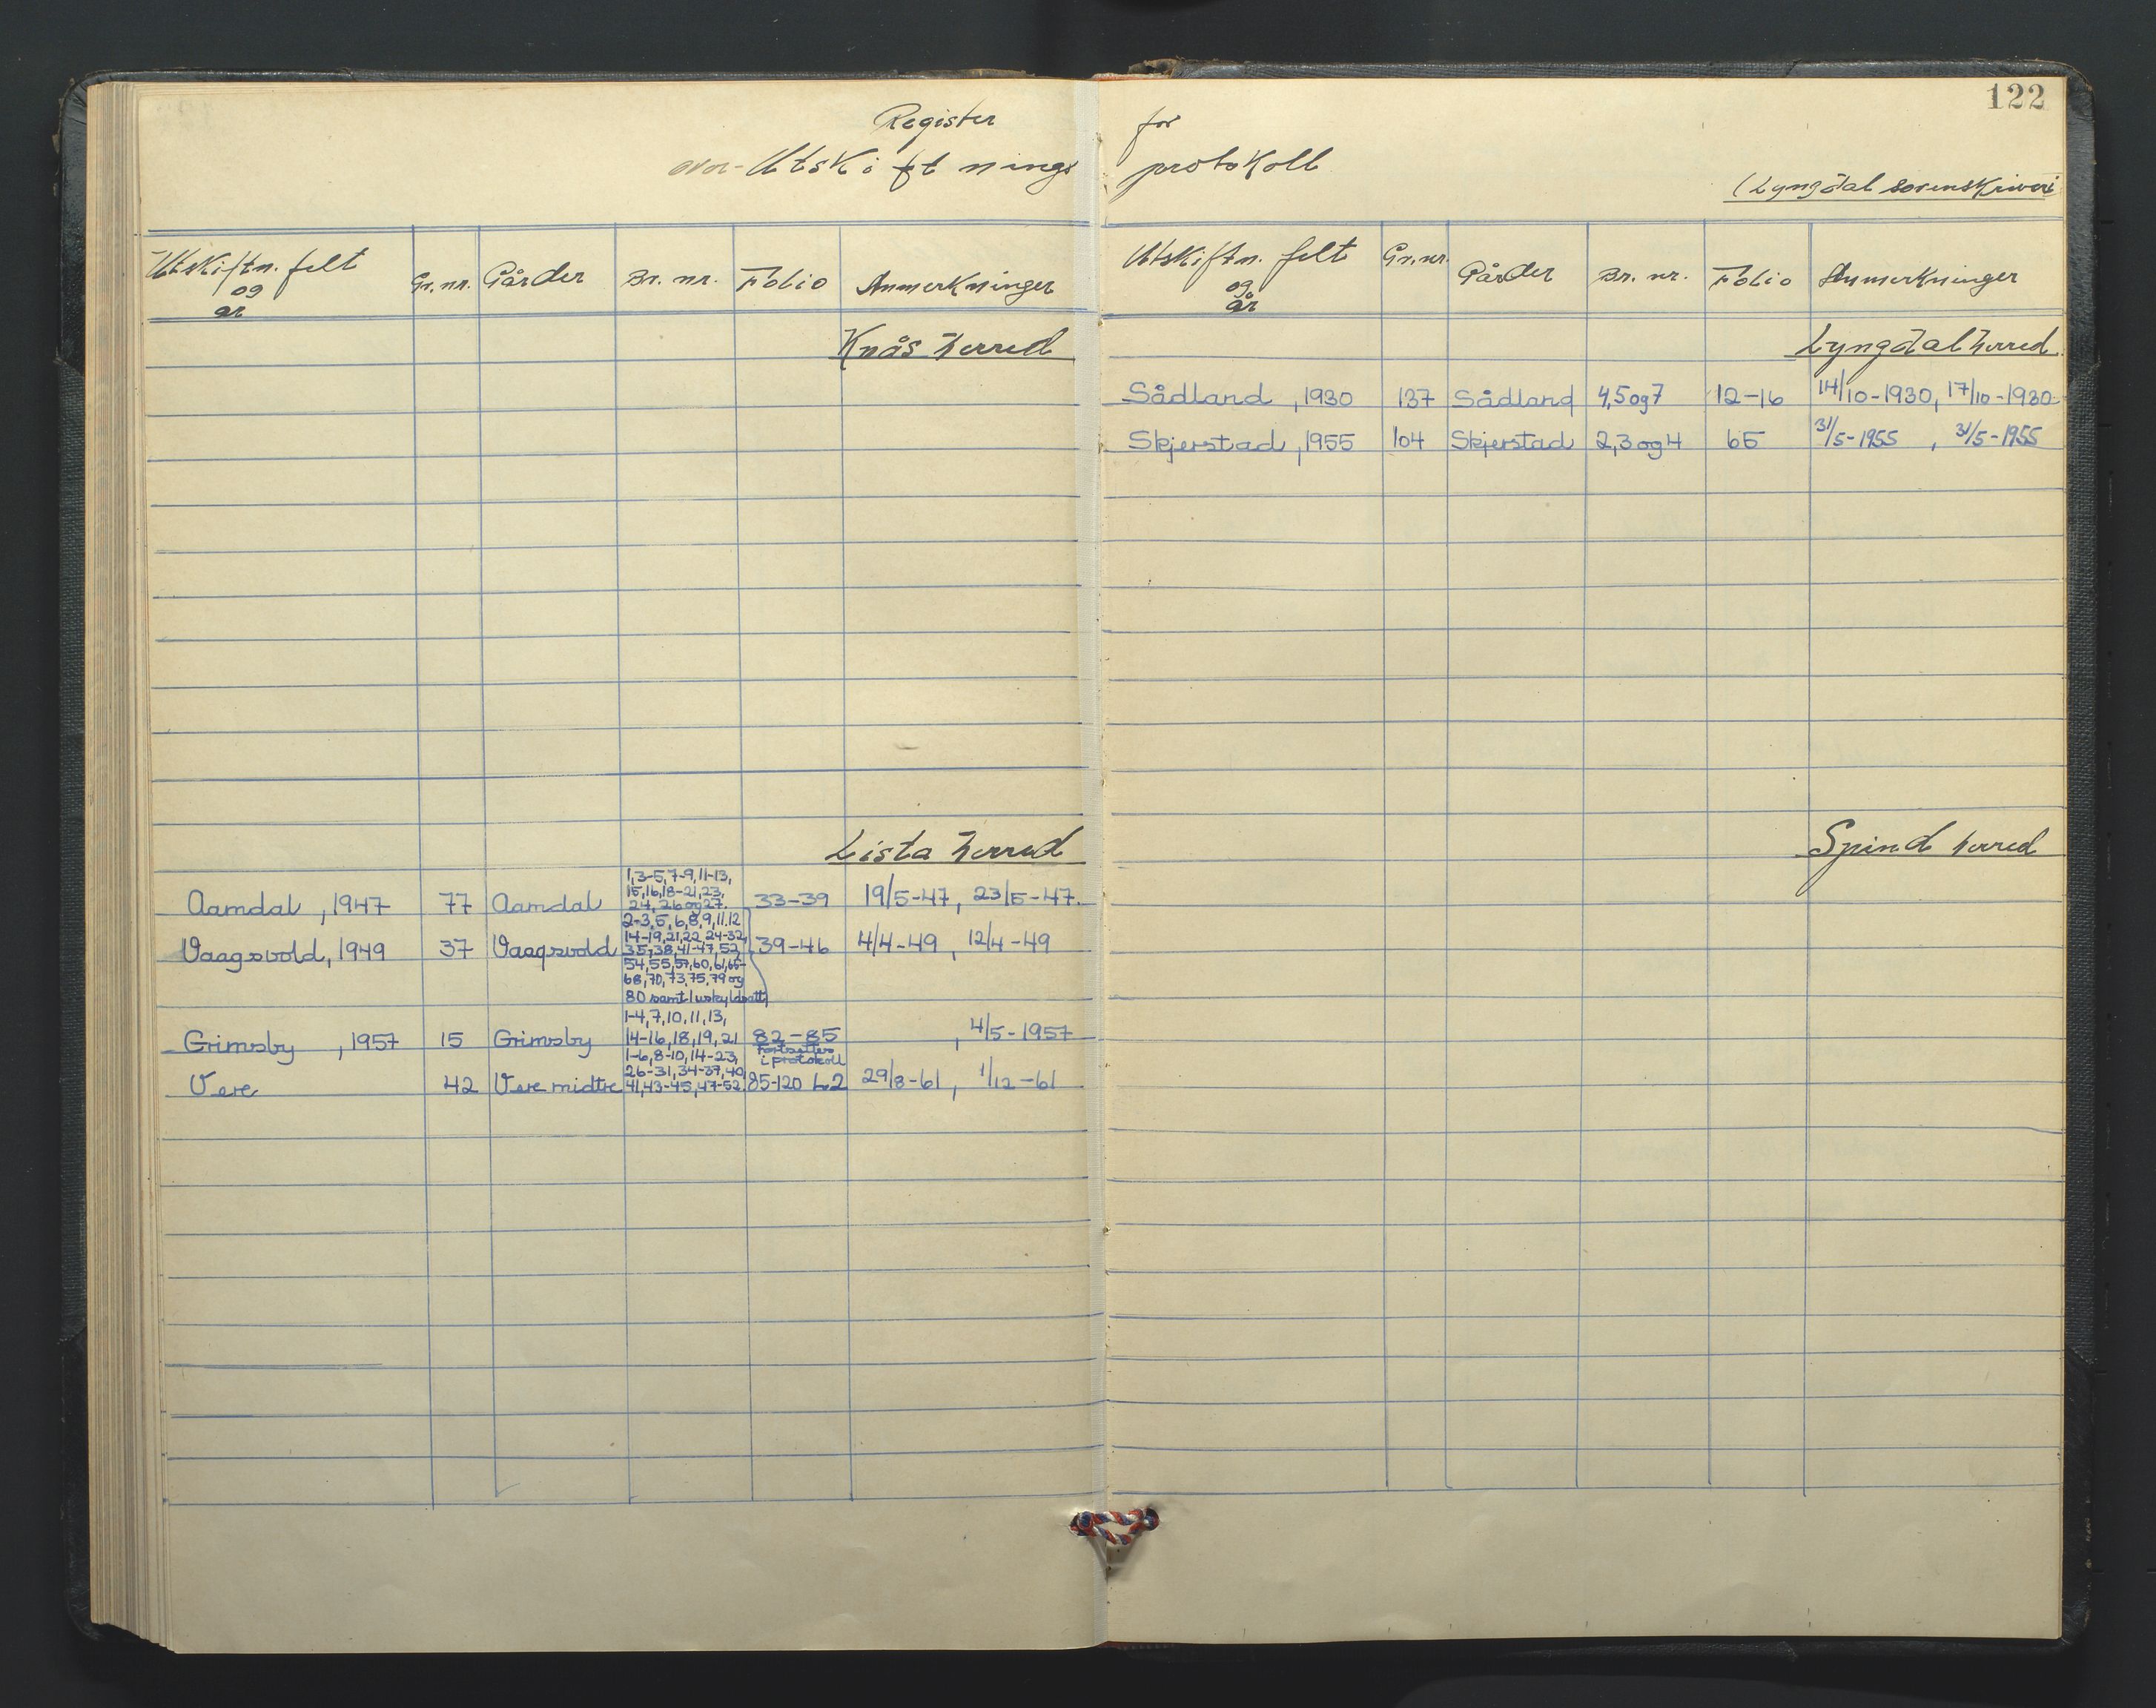 Register
over Utskiftnings
Utskiftn. felt og år Gr.nr. Gårder Br. nr. Folio Anmerkninger
Kvås herred
Lista herred
1,3-5,7-9,11-13,
15,16,18-21,23,
Aamdal , 1947 77 Aamdal 24, 26 og 27. 33-39 19/5-47, 23/5-47.
2-3,5,6,8,9,11.12
14-19,21,22,24-32,
Vaagsvold, 1949 37 Vaagsvold 35-38,41-47,52, 39-46 4/4-49 , 12/4-49
54,55,57,60,61,65-
68,70,73,75,79 og
80 samt 1 uskyldsatt
1-4,7,10,11,13,
Grimsby , 1957 15 Grimsby 14-16,18,19,21 82-85 , 4/5-1957
1-6,8-10,14-23, Fortsetter
26-31,34-37,40, i protokoll
Vere 42 Vere midtre 41,43-45,47-52. 85-120 L2 29/8-61, 1/12-61
122
for
protokoll
(Lyngdal sorenskriveri
Utskiftn. felt og år Gr.nr. Gårder Br. nr. Folio Anmerkninger
Lyngdal herred.
Sådland , 1930 137 Sådland 4,5 og 7 12-16 14/10-1930, 17/10-1930.
Skjerstad , 1955 104 Skjerstad 2,3 og 4 65 31/5-1955 , 31/5-1955
Spind herred